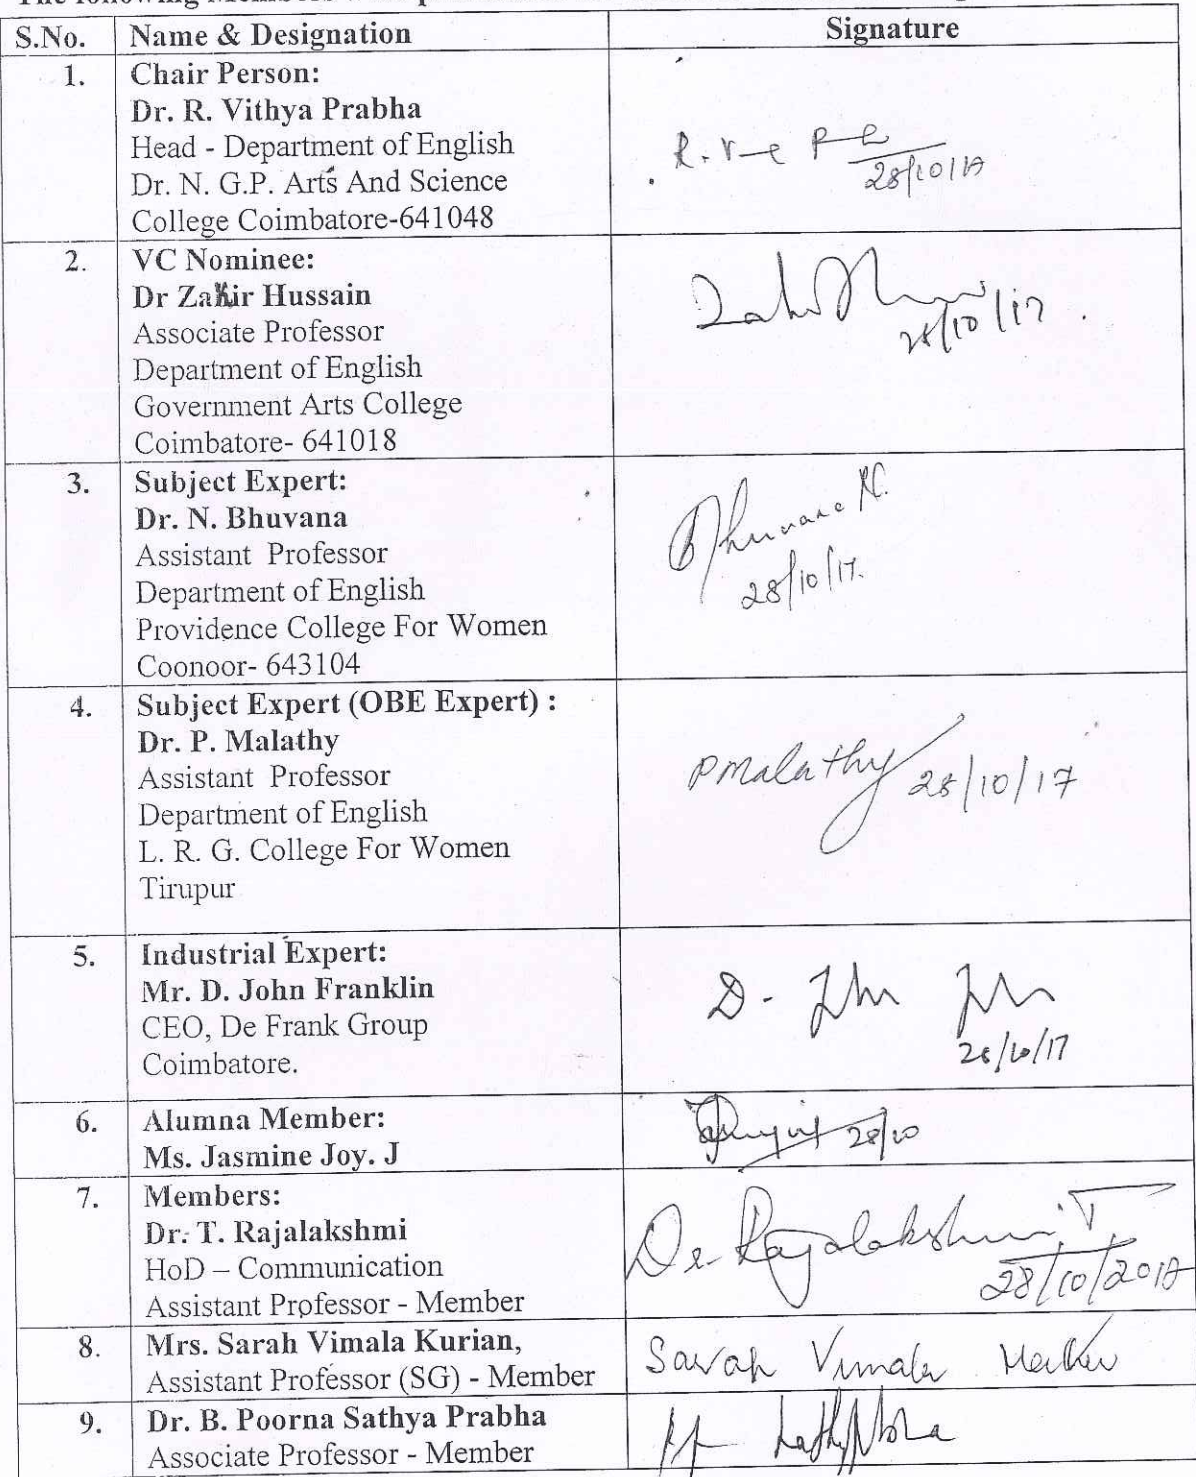 S.No. Name & Designation Signature
1. Chair Person:
Dr. R. Vithya Prabha
Head - Department of English
Dr. N. G.P. Arts And Science
College Coimbatore-641048
28/10/17
2. VC Nominee:
Dr Zakir Hussain
Associate Professor
Department of English
Government Arts College
Coimbatore- 641018
28/10/17
3. Subject Expert:
Dr. N. Bhuvana
Assistant Professor
Department of English
Providence College For Women
Coonoor- 643104
Bhuvana N.
28/10/17.
4. Subject Expert (OBE Expert) :
Dr. P. Malathy
Assistant Professor
Department of English
L. R. G. College For Women
Tirupur
P Malathy 28/10/17
5. Industrial Expert:
Mr. D. John Franklin
CEO, De Frank Group
Coimbatore.
D. John
28/10/17
6. Alumna Member:
Ms. Jasmine Joy. J
28/10
7. Members:
Dr. T. Rajalakshmi
HoD – Communication
Assistant Professor - Member
Dr. Rajalakshmi. T.
28/10/2017
8. Mrs. Sarah Vimala Kurian,
Assistant Professor (SG) - Member
Sarah Vimala
9. Dr. B. Poorna Sathya Prabha
Associate Professor - Member